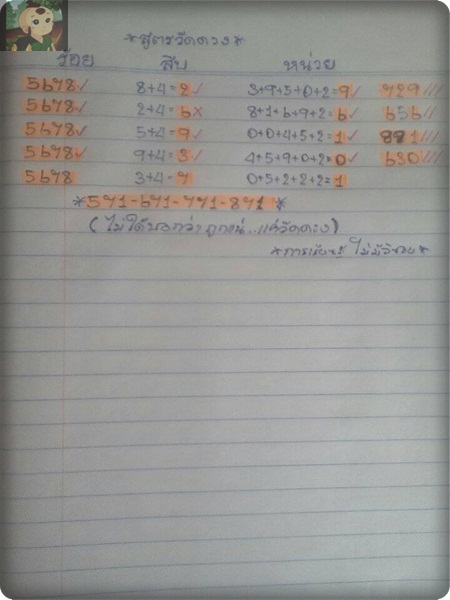 *สูตรวัดดวง*
ร้อย สิบ หน่วย
5678✓ 8+4=2✓ 3+9+5+0+2=9✓ 729///
5678✓ 2+4=6× 8+1+6+9+2=6✓ 656//
5678✓ 5+4=9✓ 0+0+4+5+2=1✓ 891///
5678✓ 9+4=3✓ 4+5+9+0+2=0✓ 630///
5678 3+4=7 0+5+2+2+2=1
*571-671-771-871*
(ไม่ได้บอกว่าถูกแน่..แค่วัดดวง)
*การเรียนรู้ ไม่มีวันจบ*